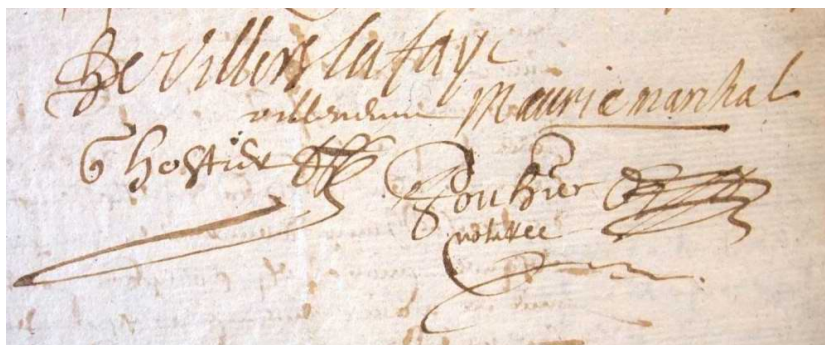 De Villers la faye
Maurie marchal
G hostier
Fouhier
notaire